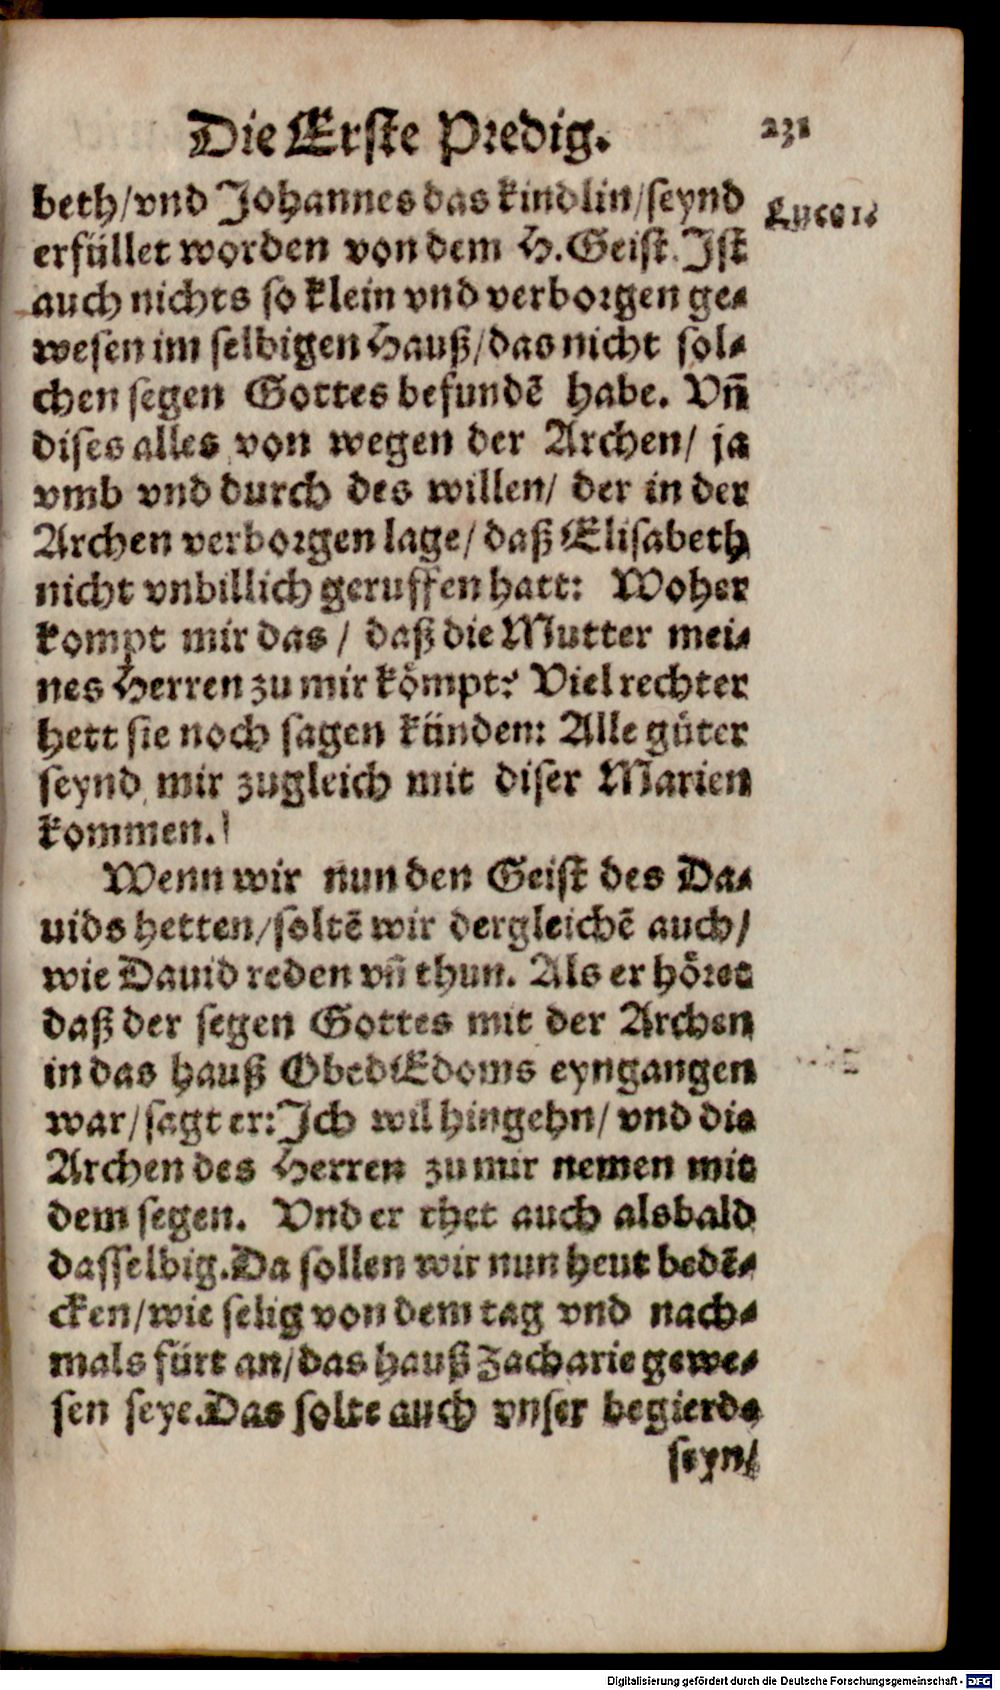 Die Erste Predig.
231
beth/vnd Johannes das kindlin/seynd
Luce 1.
erfüllet worden von dem H. Geist. Jst
auch nichts so klein vnd verborgen ge-
wesen im selbigen Hauß/das nicht sol-
chen segen Gottes befundē habe. Vñ
dises alles von wegen der Archen/ ja
vmb vnd durch des willen/ der in der
Archen verborgen lage/ daß Elisabeth
nicht vnbillich geruffen hatt: Woher
kompt mir das / daß die Mutter mei-
nes Herren zu mir kömpt? Viel rechter
hett sie noch sagen künden: Alle güter
seynd mir zugleich mit diser Marien
kommen.
Wenn wir nun den Geist des Da-
uids hetten/soltē wir dergleichē auch/
wie Dauid reden vñ thun. Als er höret
daß der segen Gottes mit der Archen
in das hauß ObedEdoms eyngangen
war/sagt er: Jch wil hingehn/ vnd die
Archen des Herren zu mir nemen mit
dem segen. Vnd er thet auch alsbald
dasselbig. Da sollen wir nun heut bedē-
cken/wie selig von dem tag vnd nach-
mals fürt an/das hauß Zacharie gewe-
sen seye. Das solte auch vnser begierde
seyn/
Digitalisierung gefördert durch die Deutsche Forschungsgemeinschaft - DFG